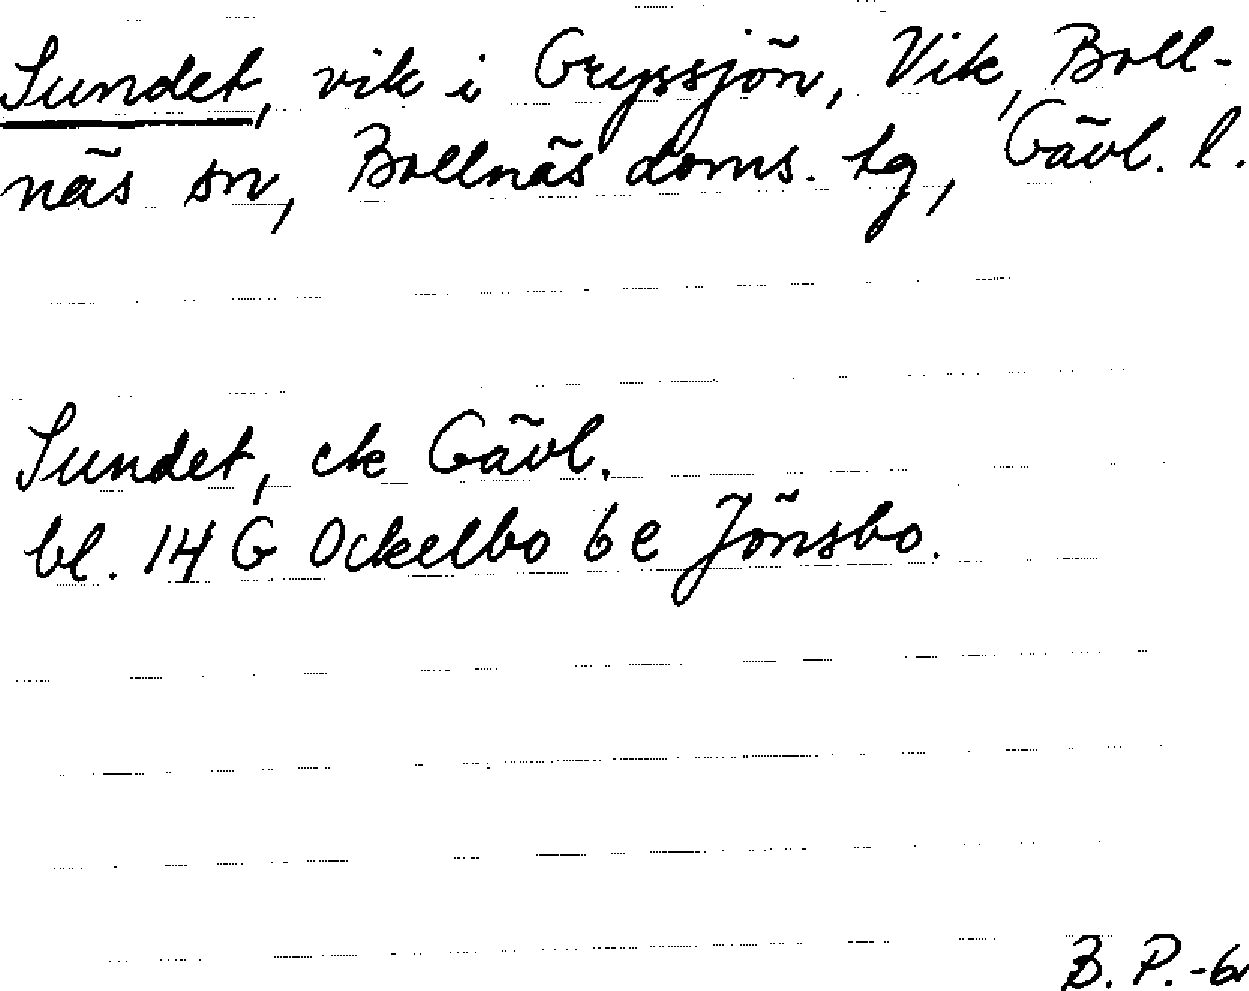 Sundet, vik i Gryssjön, Vik, Boll-
näs sn, Bollnäs doms. tg, Gävl. l.
Sundet, ek Gävl.
bl. 14 G Ockelbo 6 e Jönsbo.
B. P. -6